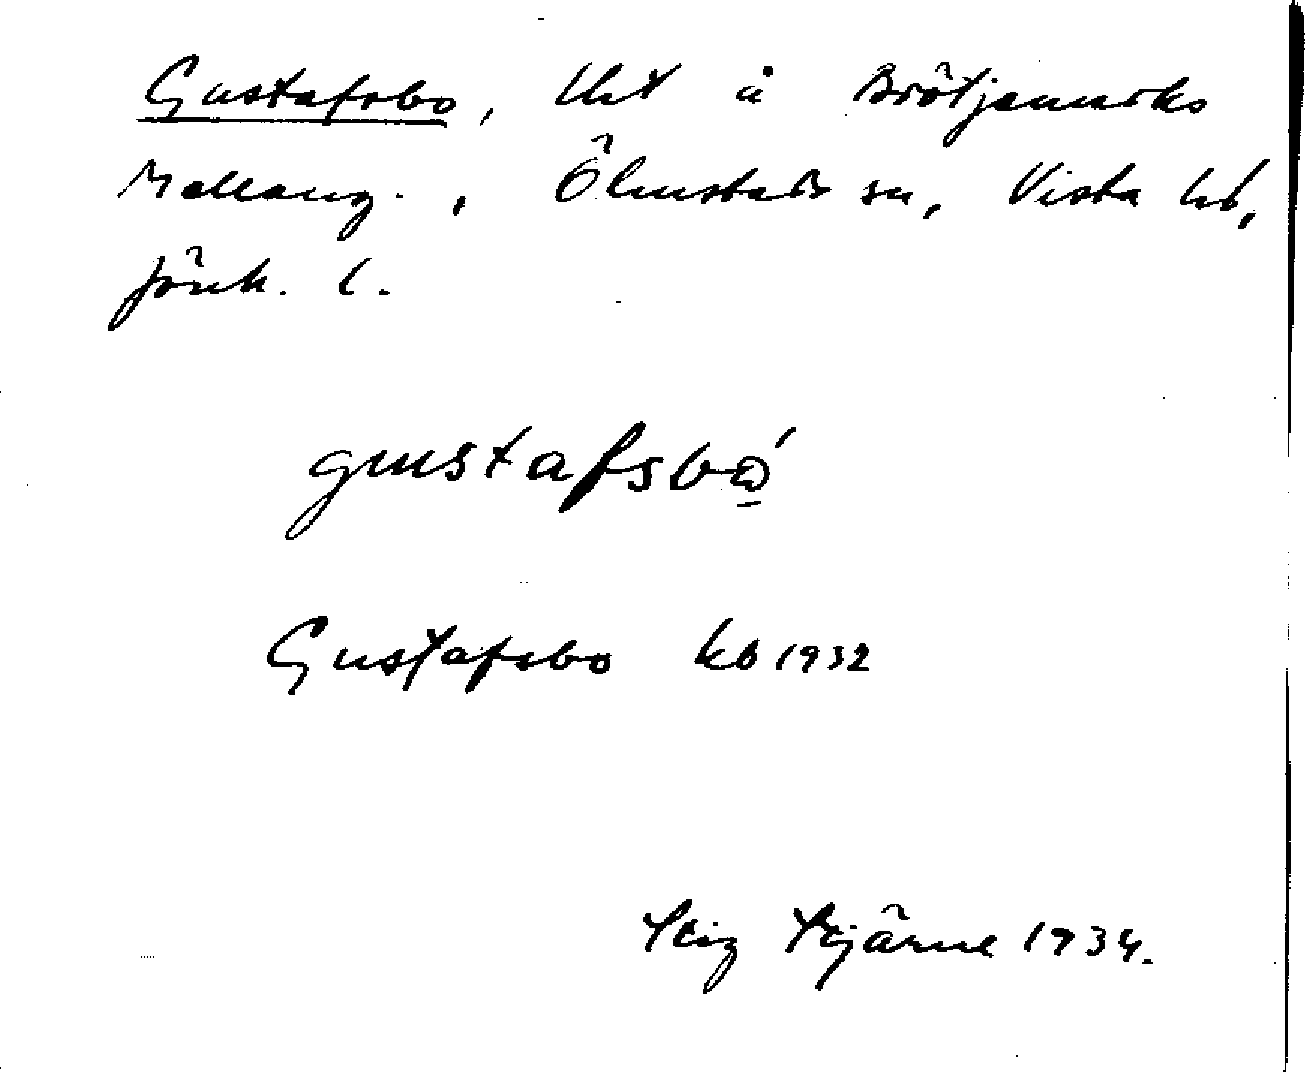 Gustafsbo, lht å Brötjemarks
Mellang., Ölmstads sn, Vista hd,
Jönk. l.
gustafsbo̱´
Gustafsbo kb 1932
Stig Stjärne 1934.